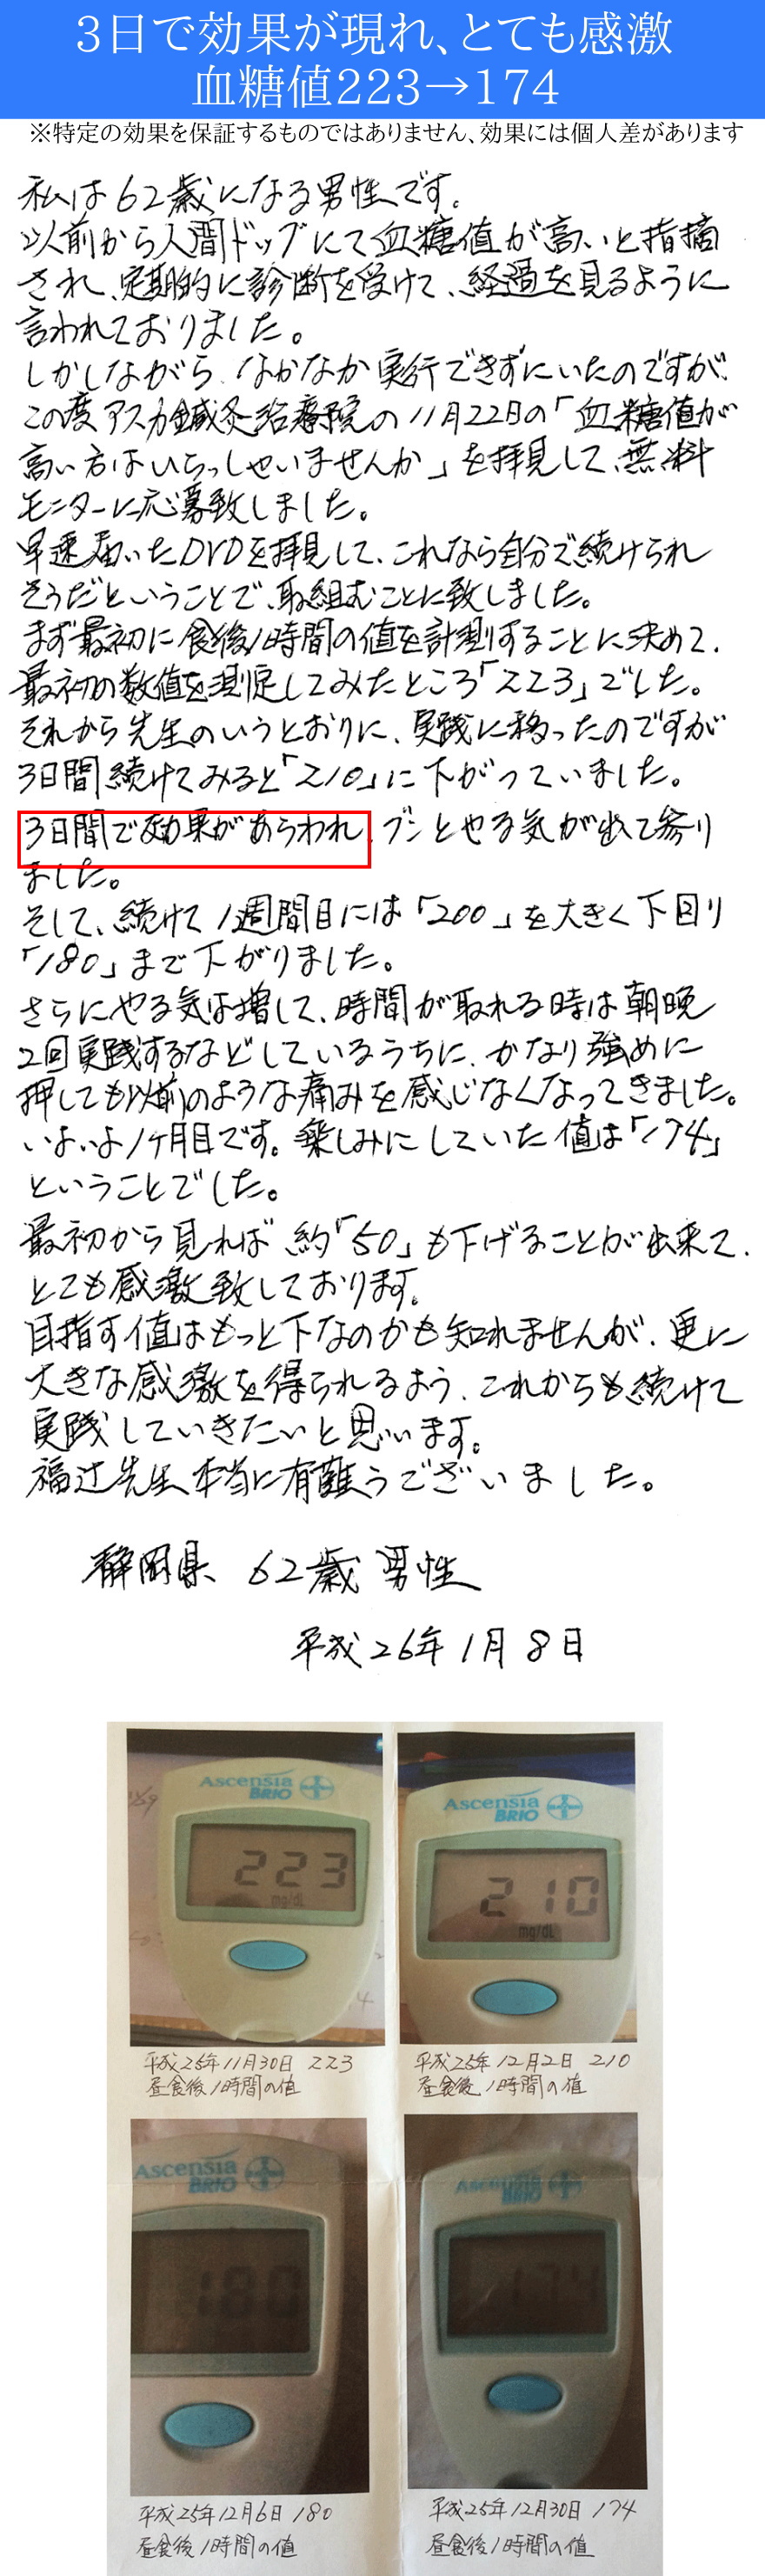 3日で効果が現れ、とても感激
血糖値223→174
※特定の効果を保証するものではありません、効果には個人差があります
私は62歳になる男性です。
以前から人間ドッグにて血糖値が高いと指摘
され、定期的に診断を受けて、経過を見るように
言われておりました。
しかしながら、なかなか実行できずにいたのですが、
この度アスカ鍼灸治療院の11月22日の「血糖値が
高い方はいらっしゃいませんか」を拝見して、無料
モニターに応募致しました。
早速届いたDVDを拝見して、これなら自分で続けられ
そうだということで、取組むことに致しました。
まず最初に食後1時間の値を計測することに決めて、
最初の数値を測定してみたところ「223」でした。
それから先生のいうとおりに、実践に移ったのですが
3日間続けてみると「210」に下がっていました。
3日間で効果があらわれ、グンとやる気が出て参り
ました。
そして、続けて1週間目には「200」を大きく下回り
「180」まで下がりました。
さらにやる気は増して、時間が取れる時は朝晩
2回実践するなどしているうちに、かなり強めに
押しても以前のような痛みを感じなくなってきました。
いよいよ1ヶ月目です。楽しみにしていた値は「174」
ということでした。
最初から見れば約「50」も下げることが出来て、
とても感激致しております。
目指す値はもっと下なのかも知れませんが、更に
大きな感激を得られるよう、これからも続けて
実践していきたいと思います。
福辻先生本当に有難うございました。
静岡県 62歳 男性
平成26年1月8日
Ascensia
BRIO
223
mg/dL
Ascensia
BRIO
210
mg/dL
平成25年11月30日 223
昼食後1時間の値
平成25年12月2日 210
昼食後1時間の値
Ascensia
BRIO
180
Ascensia
BRIO
174
平成25年12月6日 180
昼食後1時間の値
平成25年12月30日 174
昼食後1時間の値